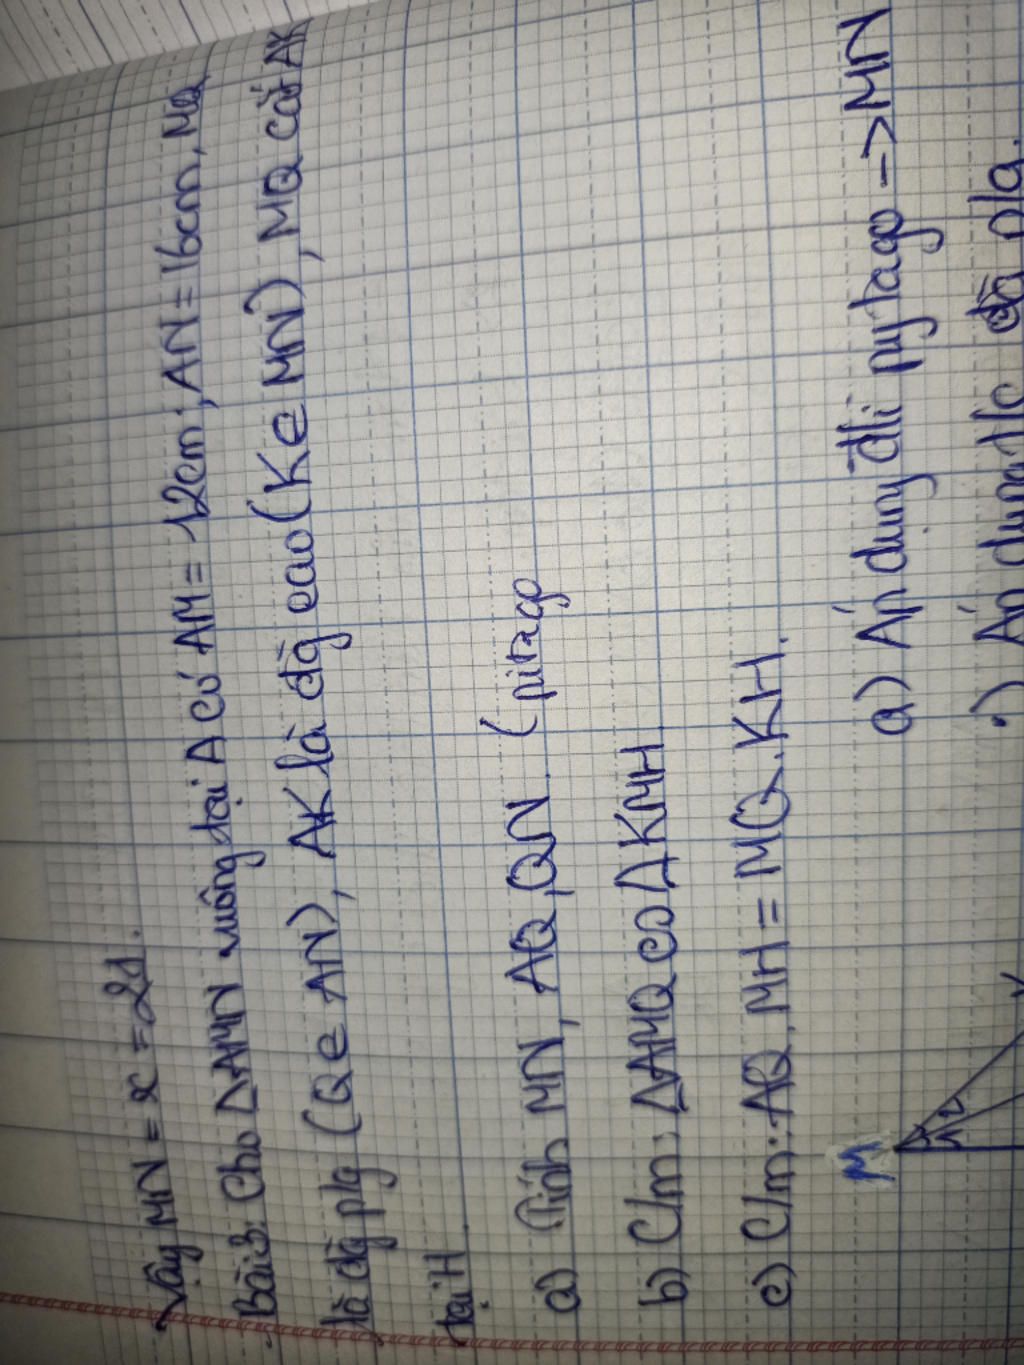 Vậy MN = x = 21.
Bài 3: Cho ΔAMN vuông tại A có AM = 12cm; AN = 16cm, MQ
là đg plg (Q ∈ AN), AK là đg cao (K ∈ MN), MQ cắt AK
tại H
a) Tính MN, AQ, QN. ( pitago
b) C/m: ΔAMQ ∽ ΔKMH
c) C/m: AQ. MH = MQ. KH.
a) Áp dụng đli pytago -> MN
.) Áp dụng t/c đg plg.
M
1 2
K